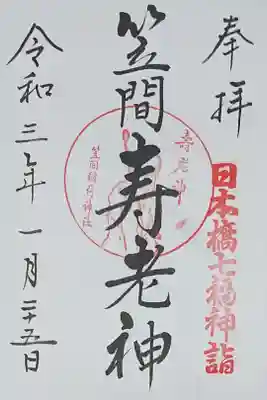 奉拝
日本橋七福神詣
笠間寿老神
寿老神
笠間稲荷神社
令和三年一月二十五日